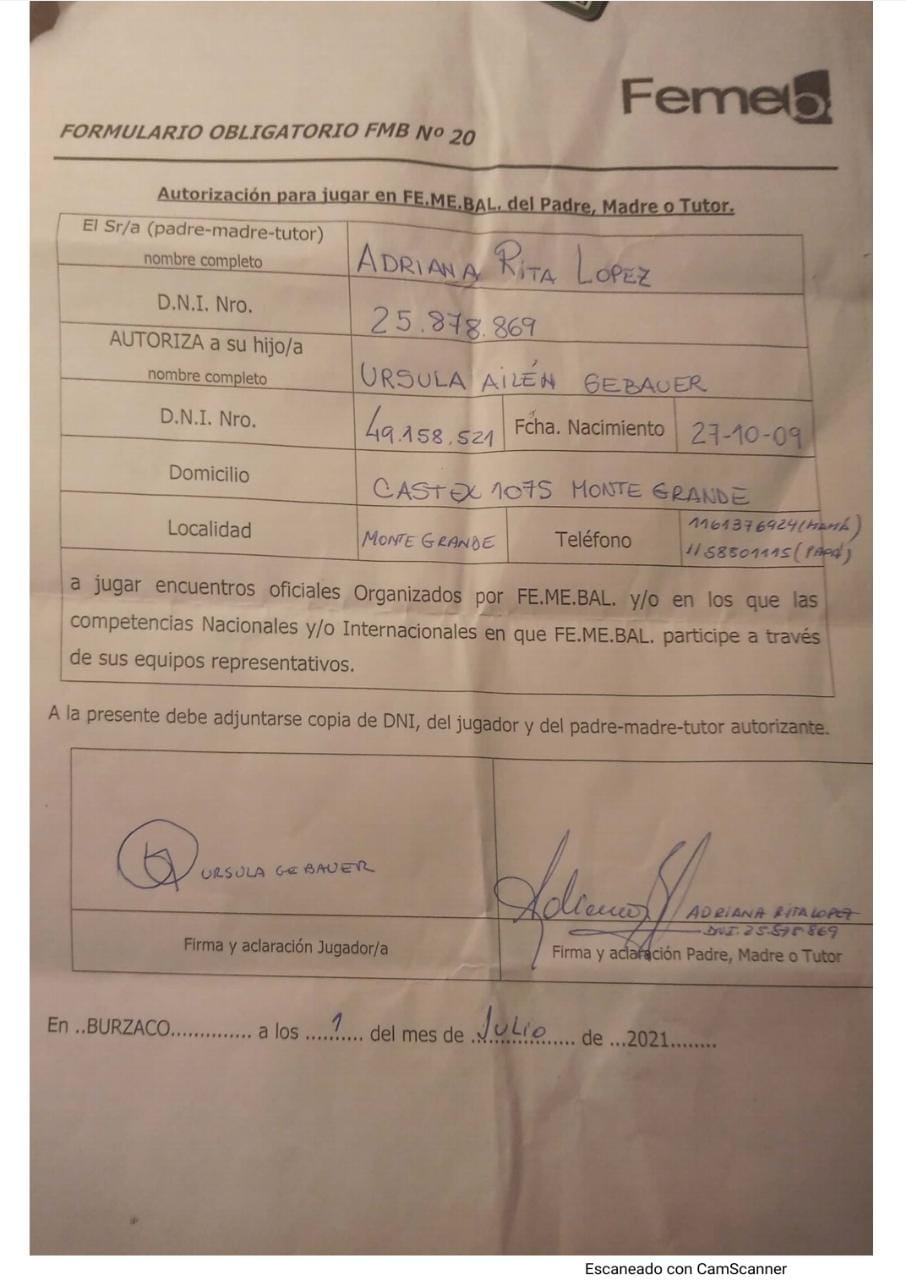 Femeb
FORMULARIO OBLIGATORIO FMB Nº 20
Autorización para jugar en FE.ME.BAL. del Padre, Madre o Tutor.
El Sr/a (padre-madre-tutor)
nombre completo
ADRIANA RITA LOPEZ
D.N.I. Nro.
25.878.869
AUTORIZA a su hijo/a
nombre completo
URSULA AILÉN GEBAUER
D.N.I. Nro.
49.158.521
Fcha. Nacimiento
27-10-09
Domicilio
CASTEX 1075 MONTE GRANDE
Localidad
MONTE GRANDE
Teléfono
1161376924 (MAMÁ)
1158801115 (PAPÁ)
a jugar encuentros oficiales Organizados por FE.ME.BAL. y/o en los que las
competencias Nacionales y/o Internacionales en que FE.ME.BAL. participe a través
de sus equipos representativos.
A la presente debe adjuntarse copia de DNI, del jugador y del padre-madre-tutor autorizante.
URSULA GEBAUER
Adriana
ADRIANA RITA LOPEZ
DNI. 25.878.869
Firma y aclaración Jugador/a
Firma y aclaración Padre, Madre o Tutor
En ..BURZACO.............. a los ....1..... del mes de ..Julio.......... de ...2021........
Escaneado con CamScanner